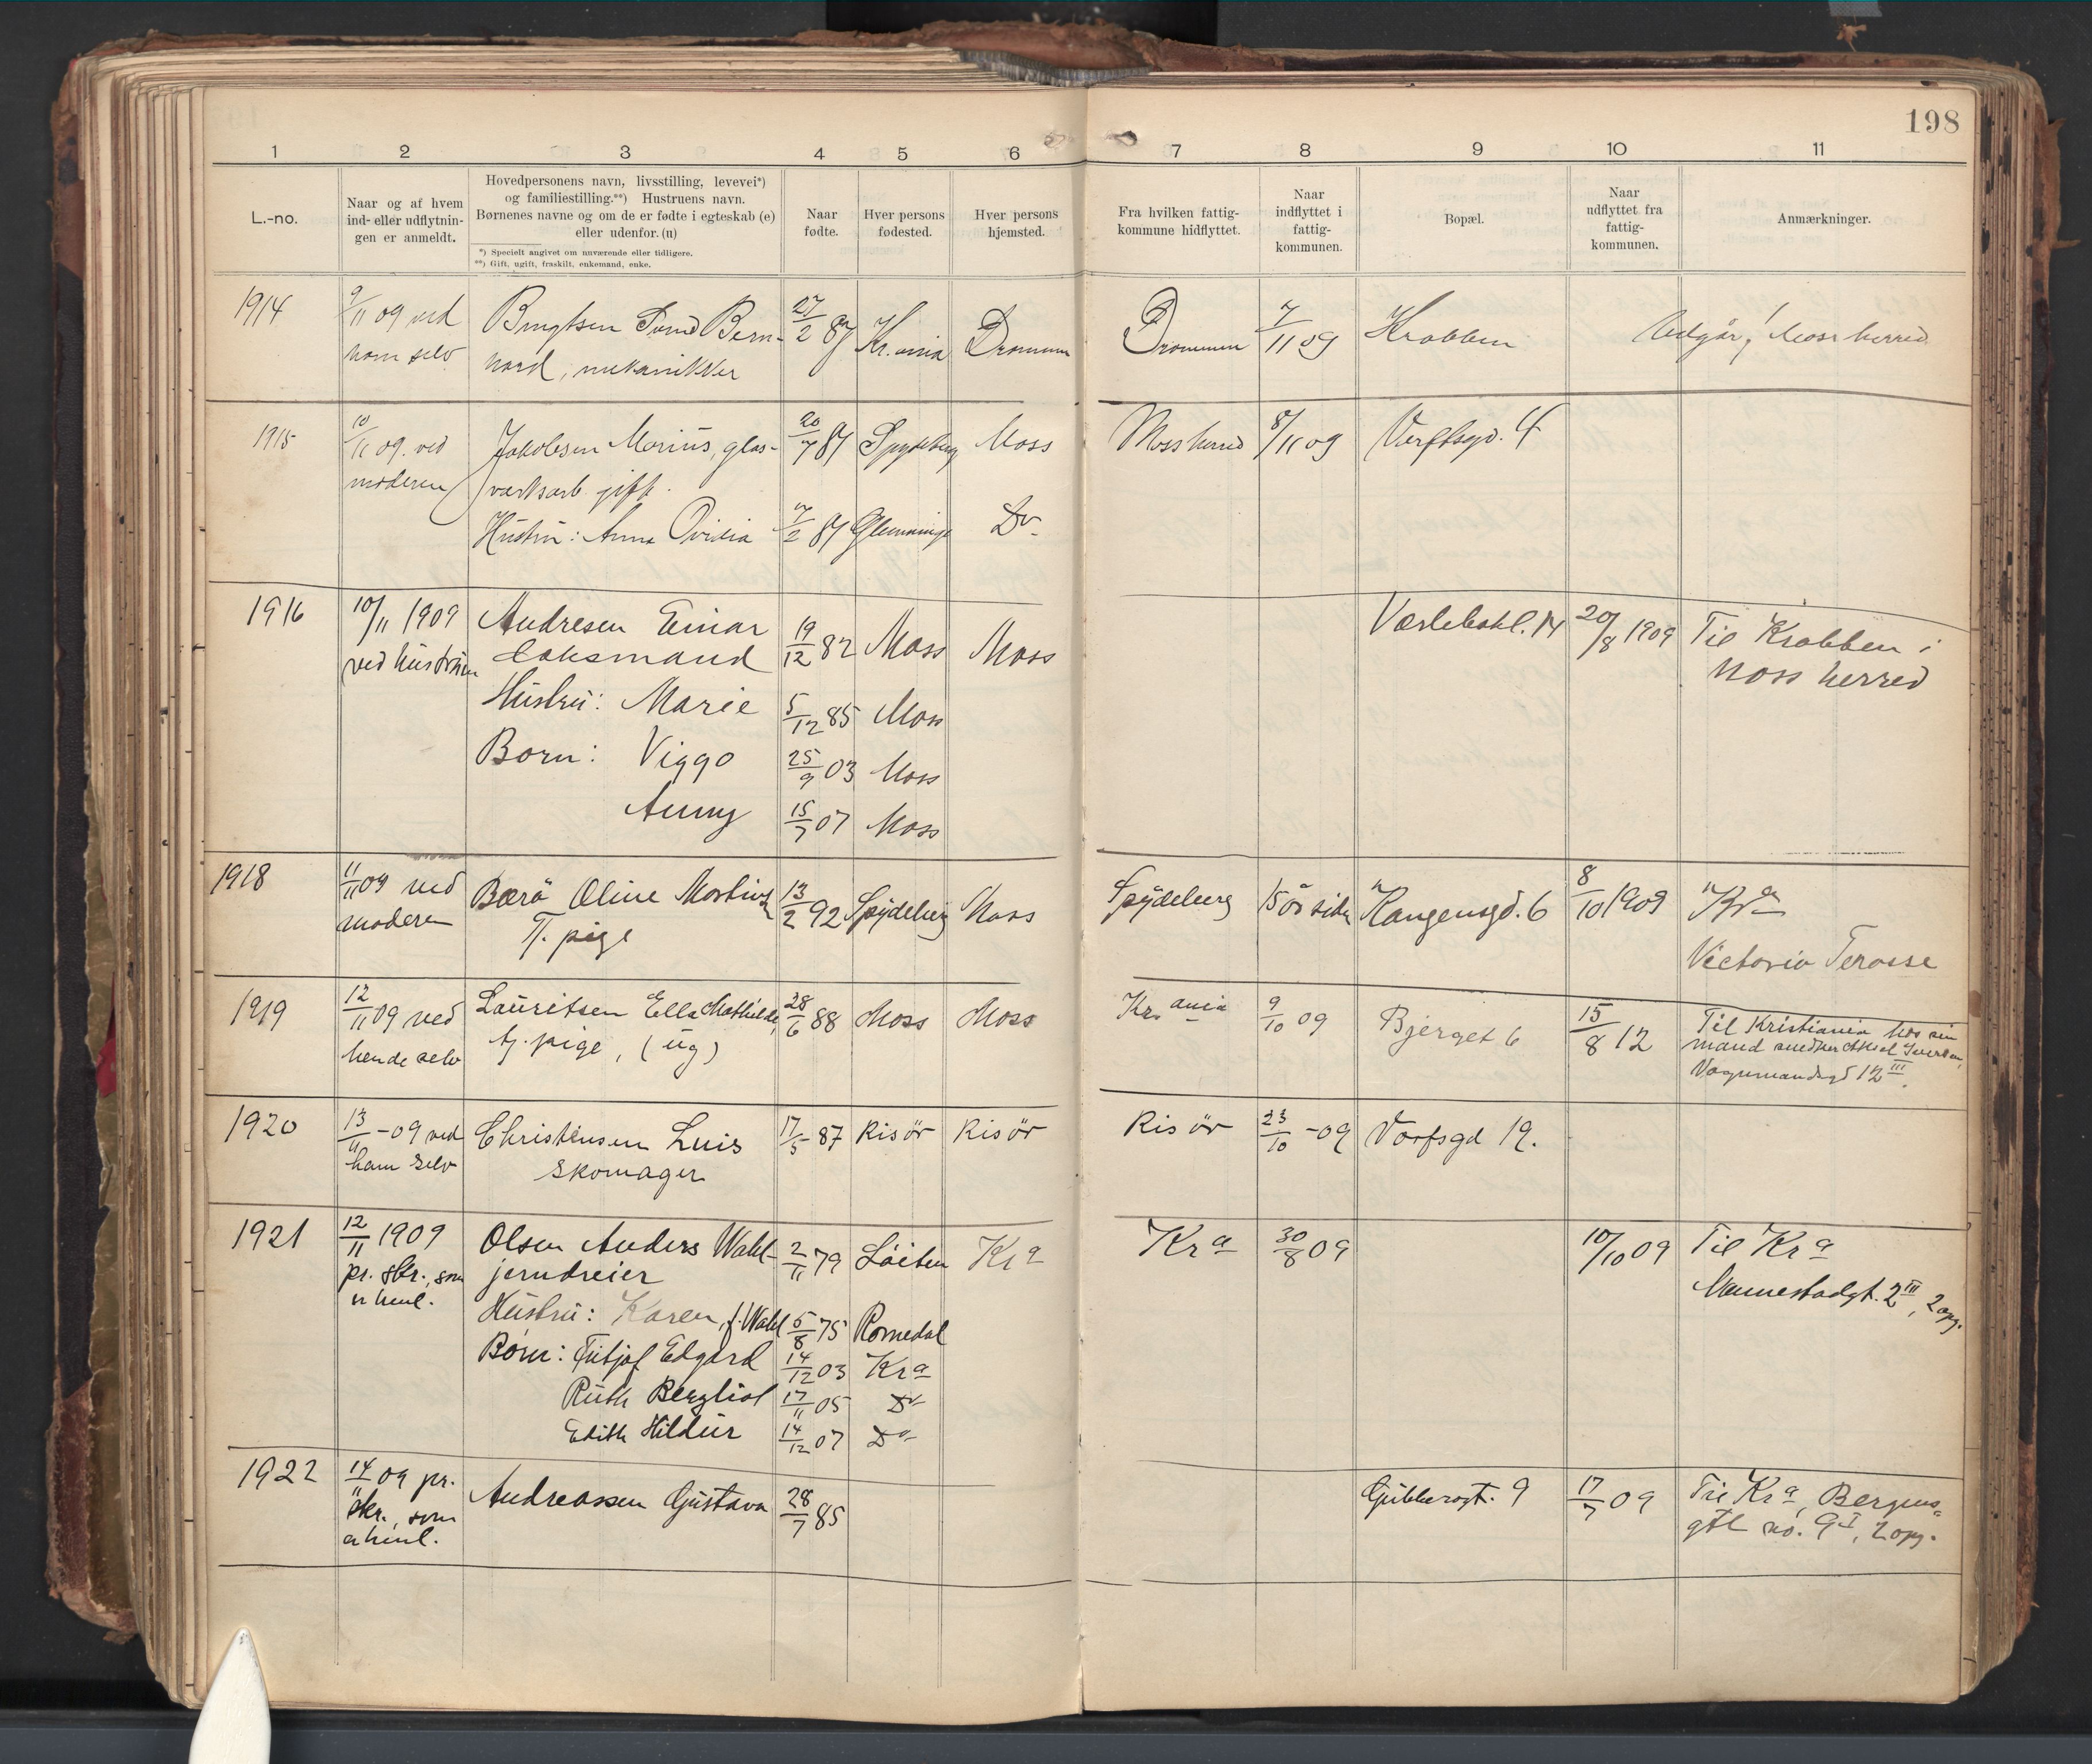 198
1 2 3 4 5 6 7 8 9 10 11
L.-no.
Naar og af hvem
ind- eller udflytnin-
gen er anmeldt.
Hovedpersonens navn, livsstilling, levevei*)
og familiestilling.**) Hustruens navn.
Børnenes navne og om de er fødte i egteskab (e)
eller udenfor. (u)
*) Specielt angivet om nuværende eller tidligere.
**) Gift, ugift, fraskilt, enkemand, enke.
Naar
fødte.
Hver persons
fødested.
Hver persons
hjemsted.
Fra hvilken fattig-
kommune hidflyttet.
Naar
indflyttet i
fattig-
kommunen.
Bopæl.
Naar
udflyttet fra
fattig-
kommunen.
Anmærkninger.
1914 9/11 09 ved Bengtsen Bern- 27/2 87 Kr.ania Drammen Drammen 7/11 09 Krabben Udgår, Moss herred
ham selv hard, mekaniker
1915 10/11 09. ved Jakobsen Marius, glas- 20/7 87 Spydeberg Moss Moss herred 8/11 09 Værftsgd. 4
moderen verksarb. gift.
Hustru: Anna Ovidia 7/2 87 Glemminge Do
1916 10/11 1909 Andresen Einar 19/12 82 Moss Moss Værlebakl. 14 20/8 1909 Til Krabben i
ved hustruen Laksmand Moss herred
Hustru: Marie 5/12 85 Moss
Børn: Viggo 25/9 03 Moss
Anny 15/7 07 Moss
1918 11/11 09 ved Bærø Oline 13/2 92 Spydeberg Moss Spydeberg Kangensgd. 6 8/10 1909 Kra
moderen Tj. pige
Victoria Terasse
1919 12/11 09 ved Lauritsen Ella Mathilde, 28/6 88 Moss Moss Kr.ania 9/10 09 Bjerget 6 15/8 12 Til Kristiania hos sin
hende selv tj. pige, (ug) mand snedker Iversen,
Vognmandsgd 12 III.
1920 13/11 - 09 ved Christensen Luis 17/5 - 87 Risör Risör Risör 23/10 - 09 Varfsgd 19.
ham selv skomager
1921 12/11 1909 Olsen Anders Wahl- 2/11 79 Löiten Kra Kra 30/8 09 10/10 09 Til Kra
pr. skr., som jerndreier Mannestadgt. 2 III, 2 opg.
er henl.
Hustru: Karen, f. Wahl 5/8 75 Romedal
Børn: Fritjof Edgard 14/12 03 Kra
Ruth Bergliot 17/11 05 Do
Edith Hildur 14/12 07 Do
1922 14/11 09 pr. Andreassen Gustava 28/7 85 Gubberogt. 9 17/7 09 Til Kra, Bergens-
skr., som gt no. 9 I, 2 opg.
er henl.